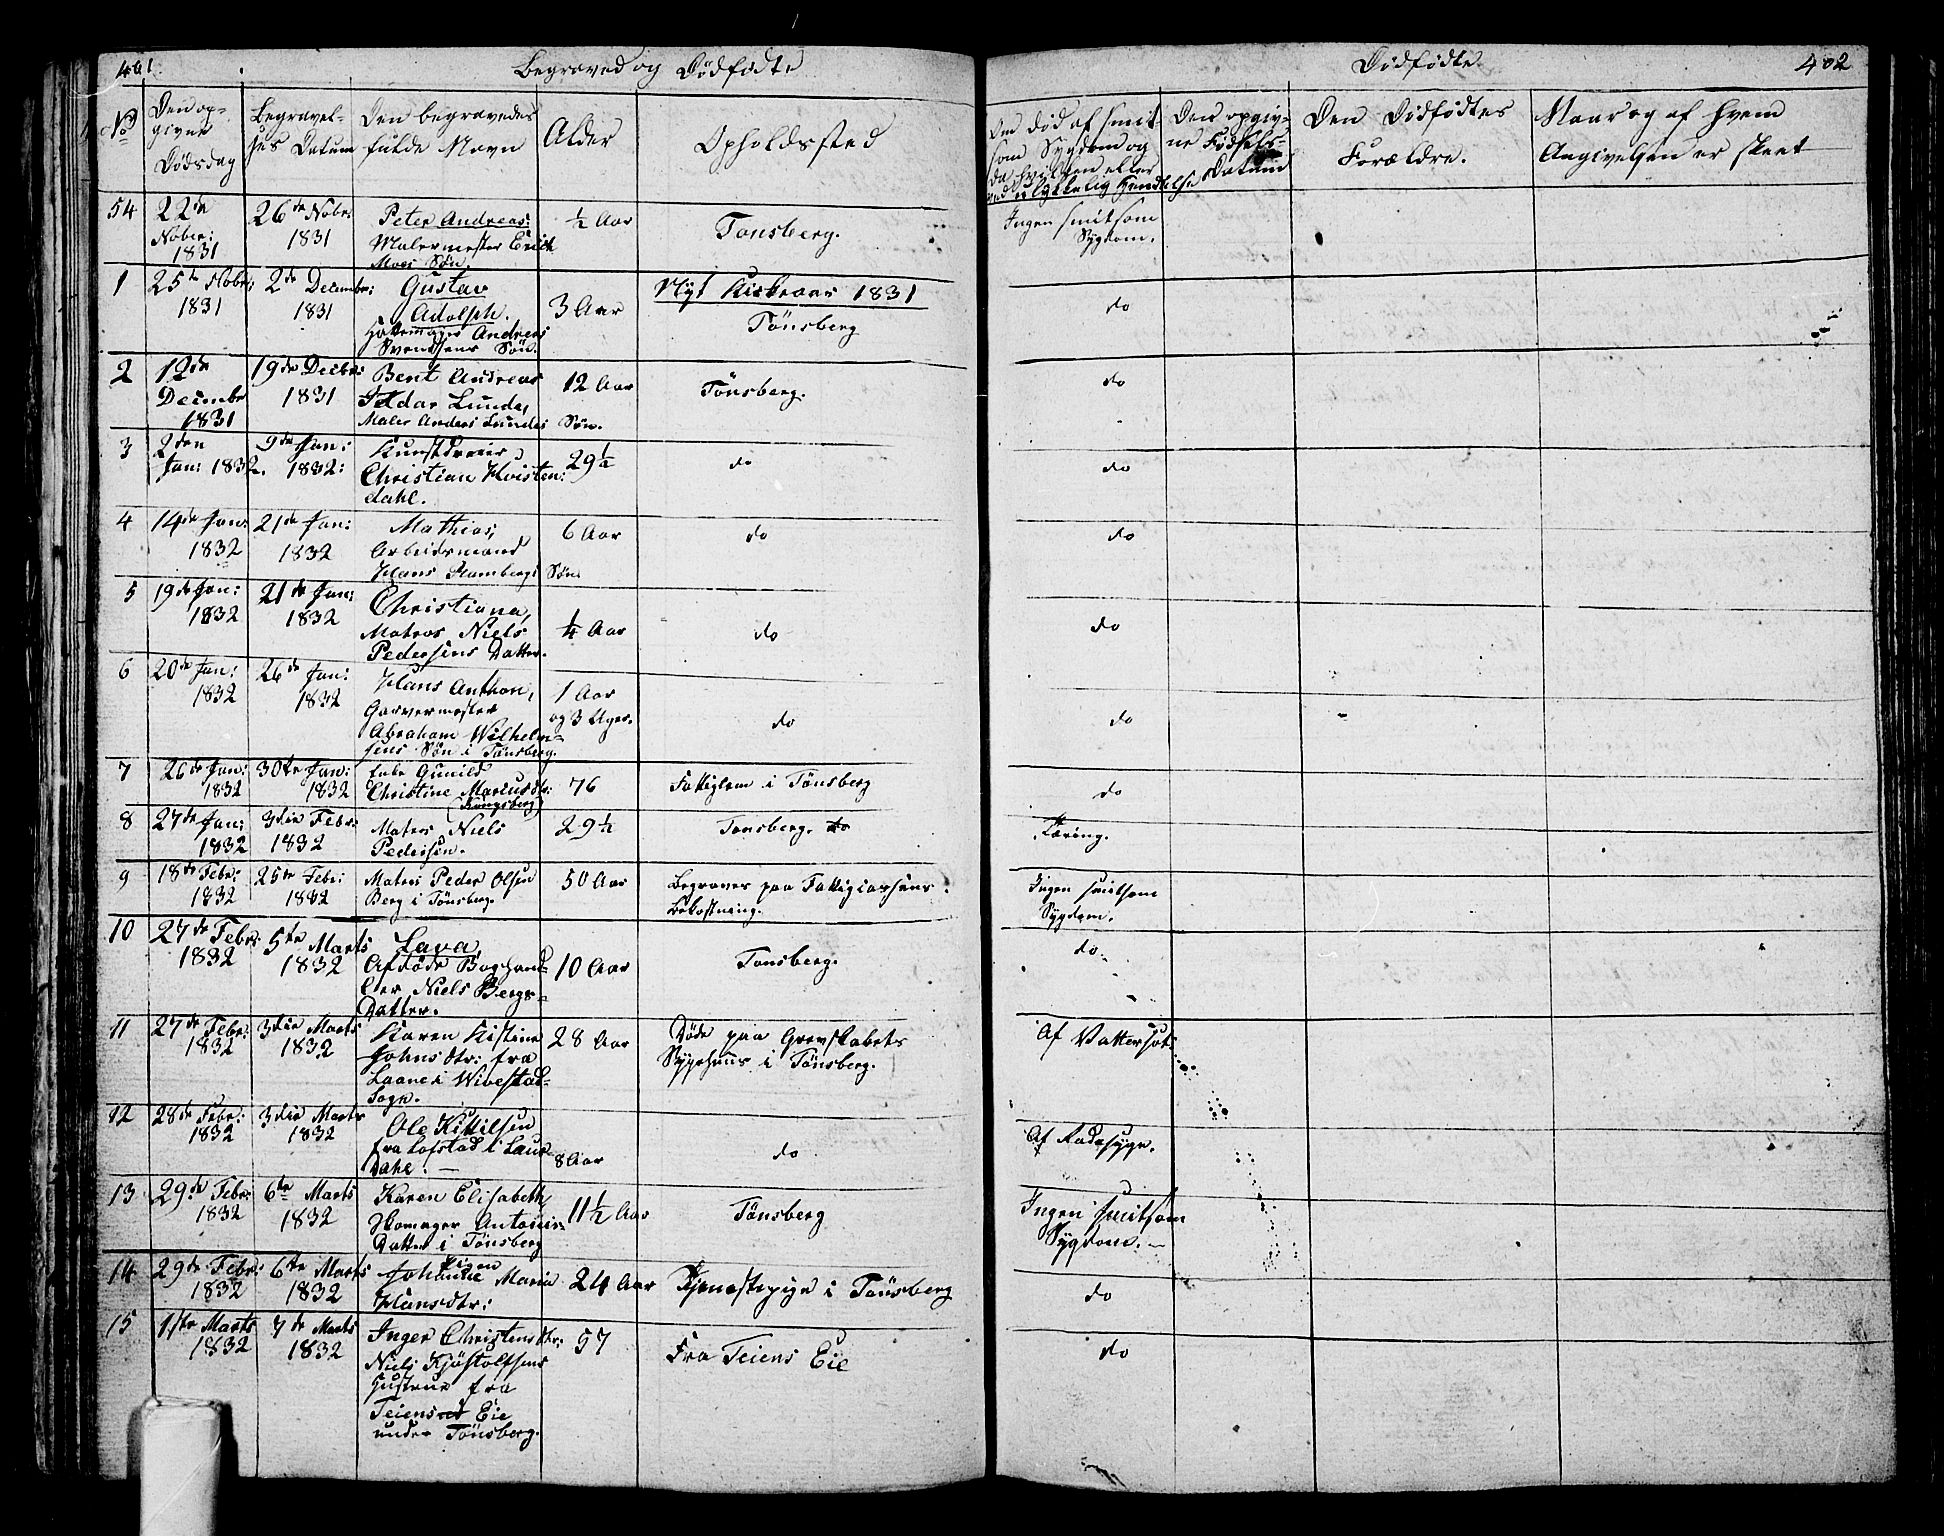 461.
Begraved og Dødfødte
No
Den op-
givne
Dødsdag
Begravel-
ses Datum
Den begravedes
fulde Navn
Alder
Opholdssted
54
22de
Nobr:
1831
26de Nobr:
1831
Peter Andreas:
Malermester Erich
Moes Søn.
½ Aar
Tonsberg.
1
25de Nobr:
1831
2de Decembr:
1831
Gustav
Adolph.
Hattemager Andreas
Svendsens Søn.
3 Aar
Nyt Kirkeaar 1831
Tönsberg
2
12te
Decembr
1831
19de Decbr:
1831
Bent Andreas
Lunde,
Maler Anders Lundes
Søn.
12 Aar
Tönsberg.
3
2den
Jan: 1832.
9de Jan:
1832:
Kunstdreier
Christian Hvisten:
dahl.
29½
do
4
14de Jan:
1832
21de Jan:
1832
Mathias,
Arbeidsmand
Hans Hambergs
Søn.
6 Aar
do
5
19de Jan:
1832
21de Jan:
1832
Christiana,
Matros Niels
Pedersens Datter.
¼ Aar
do
6
20de Jan:
1832
26de Jan:
1832
Hans Anthon,
Garvermester
Abraham Wilhelm-
sens Søn i Tönsberg.
1 Aar
og 3 Uger.
do
7
26de Jan:
1832
30te Jan:
1832
Enke Gunild
Christine Marcusdtr:
(Kongsberg)
76
Fattiglem i Tönsberg
8
27de Jan:
1832
3die Febr:
1832
Matros Niels
Pedersen.
29½
Tonsberg. do
9
18de Febr:
1832
25te Febr:
1832
Matros Peder Olsen
Berg i Tönsberg.
50 Aar
Begraves paa Fattigcassens
Bekostning.
10
27de Febr:
1832
5te Marts
1832
Lava,
Afdöde Boghand-
ler Niels Bergs-
Datter.
10 Aar
Tonsberg.
11
27de Febr:
1832
3die Marts
1832
Karen Kistine
Johnsdtr: fra
Laane i Wivestad-
Sogn.
28 Aar
Döde paa Grevskabets
Sygehuus i Tönsberg.
12
28de Febr:
1832
3die Marts
1832
Ole Kittilsen
fra Lofstad i Laur-
dahl. —
8 Aar
do
13
29de Febr:
1832
6te Marts
1832
Karen Elisabeth,
Skomager Antoni
Datter i Tönsberg
11½ Aar
Tönsberg
14
29de Febr:
1832
6te Marts
1832
Pigen
Johanne Maria
Hansdtr:
24 Aar
Tjenestepige i Tönsberg
15
1ste Marts
1832
7de Marts
1832
Inger Christensdtr:
Niels Kjöstolfsens
Hustrue fra
Teiens Eie
under Tönsberg.
57
Fra Teiens Eie
Dødfødte.
402
Om død af smit-
som Sygdom og
da hvilken eller
ved ulykkelig Hendelse
Den opgiv-
ne Fødsels-
Datum
Den Dødfødtes
Forældre.
Naar og af hvem
Angivelsen er skeet
Ingen smitsom
Sygdom.
do
do
do
do
do
do
do
Tæring.
Ingen smitsom
Sygdom.
do.
Af Vattersot:
Af Radesyge.
Ingen smitsom
Sygdom. —
do
do